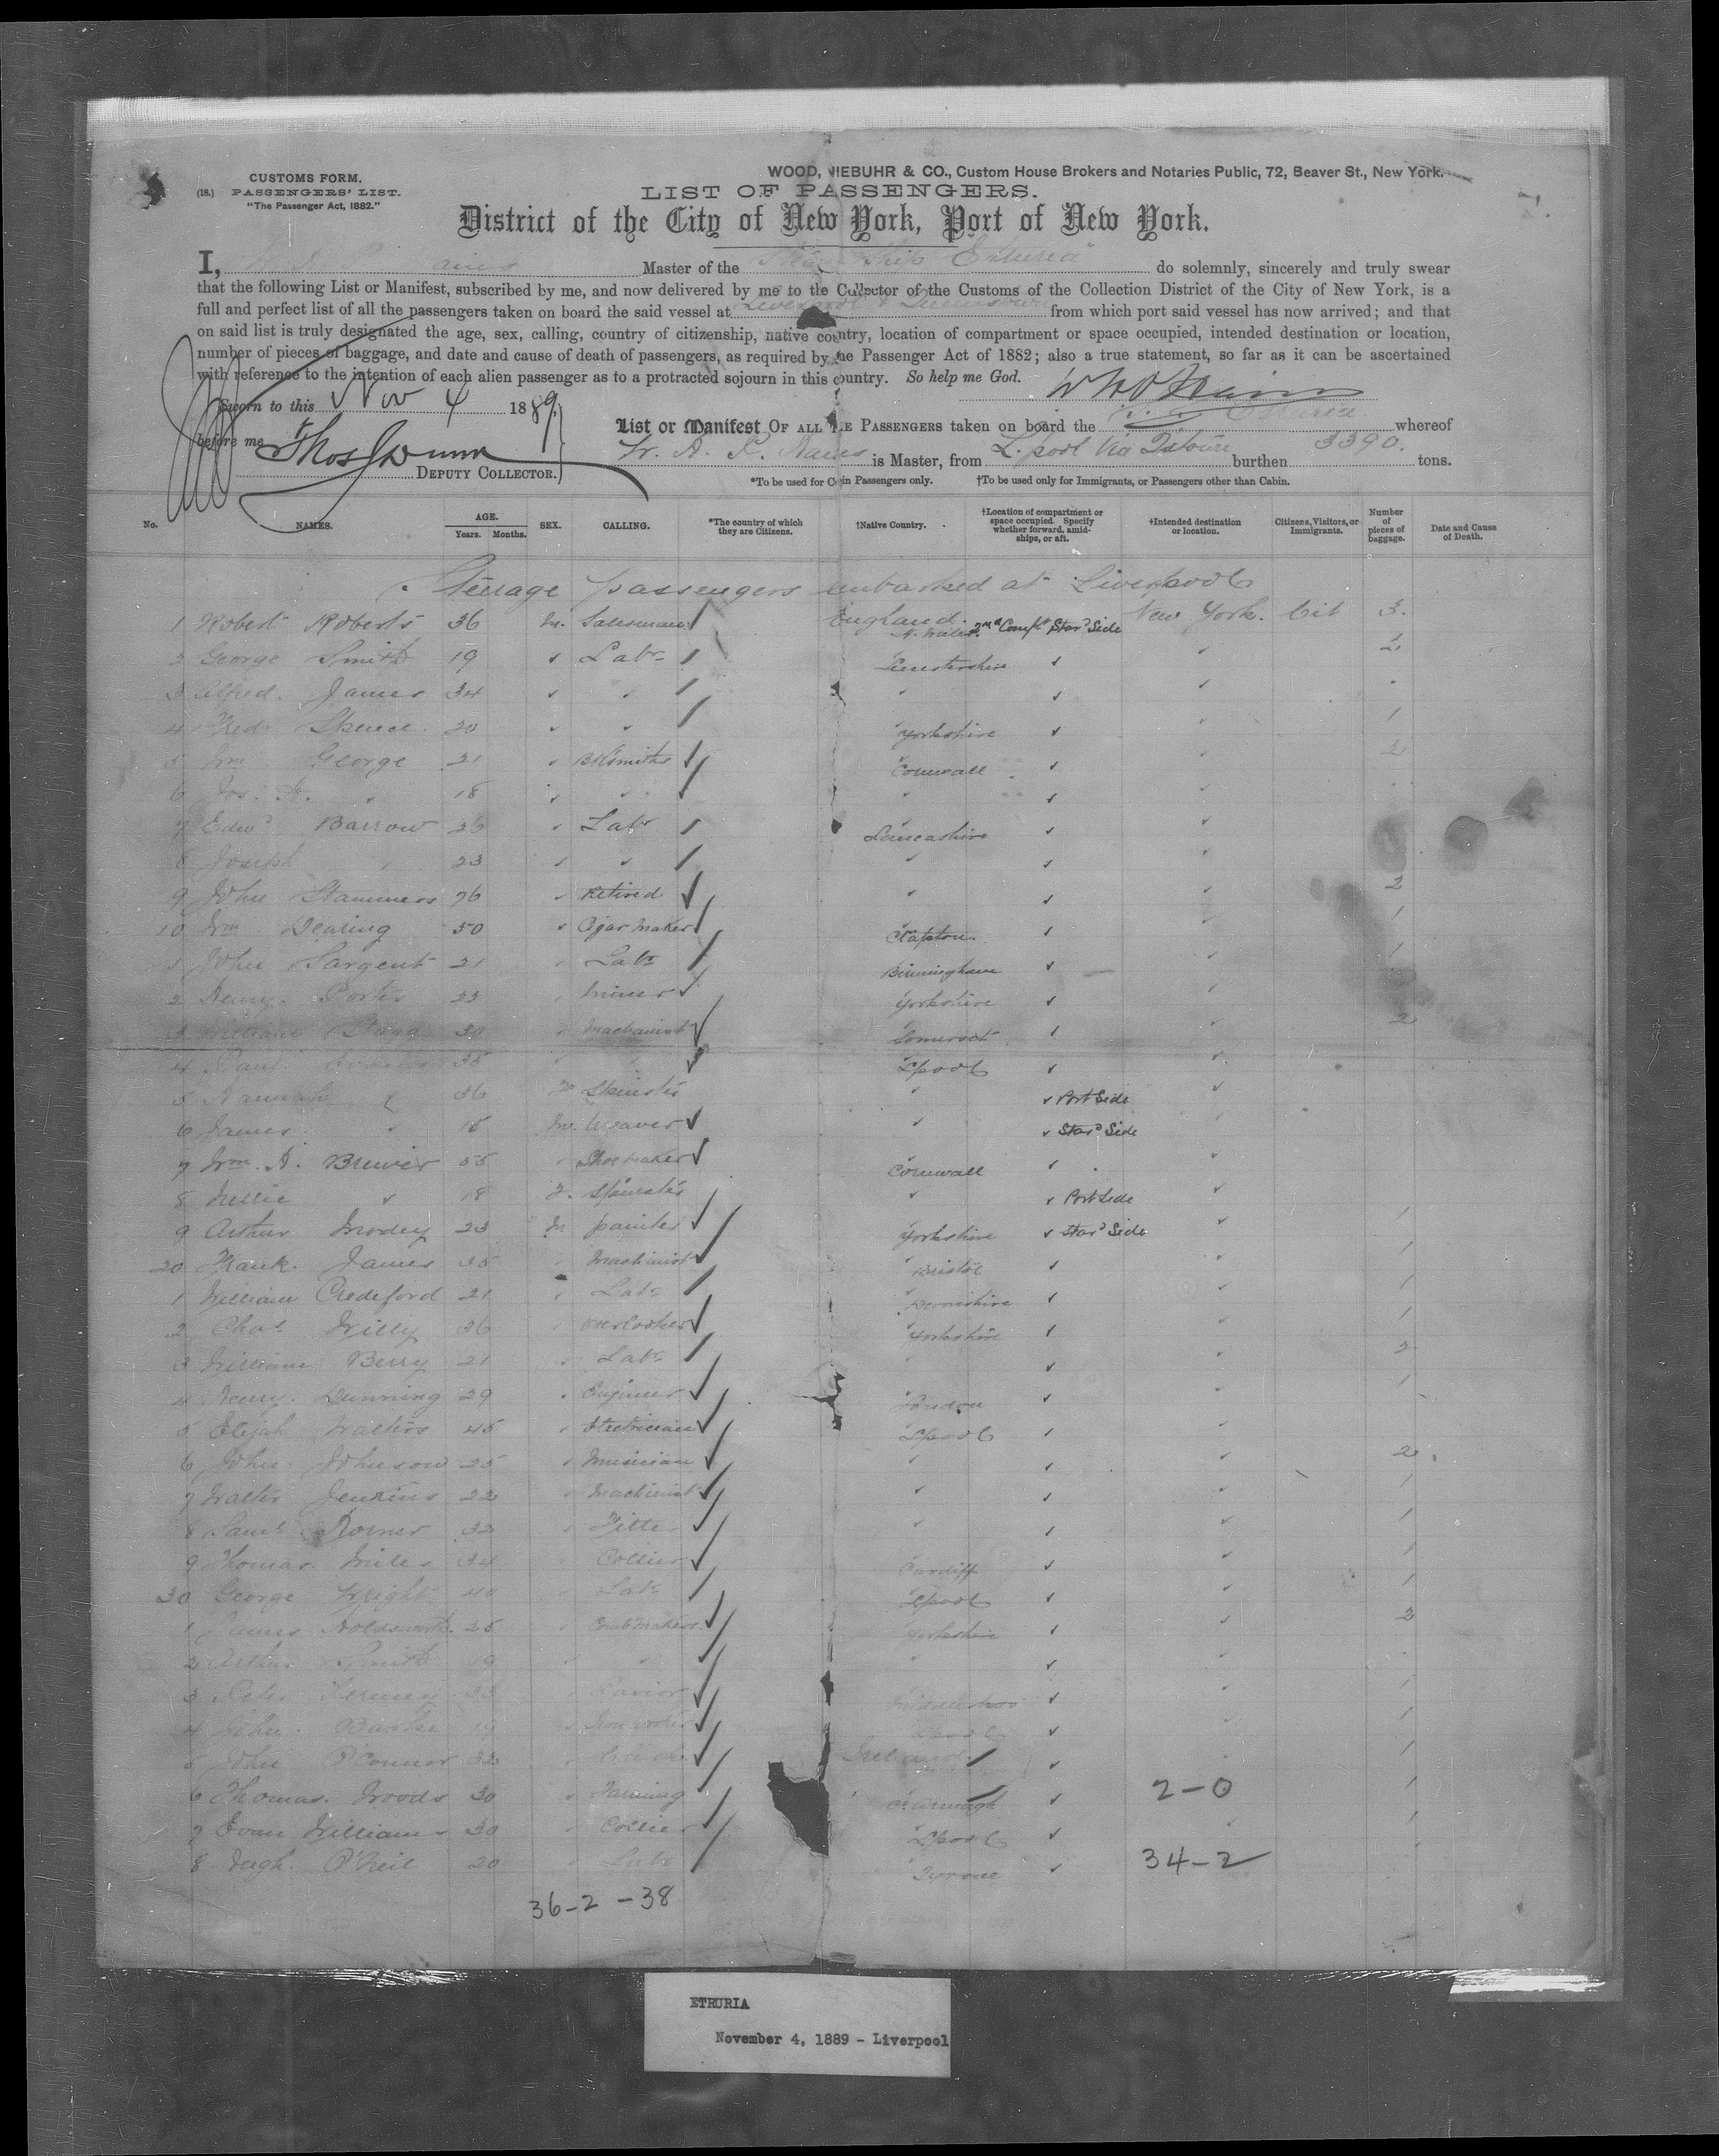 CUSTOMS FORM.
(18.) PASSENGERS' LIST.
"The Passenger Act, 1882."
WOOD, NIEBUHR & CO., Custom House Brokers and Notaries Public, 72, Beaver St., New York.
LIST OF PASSENGERS.
District of the City of New York, Port of New York.
I, Master of the Steam Ship Etruria do solemnly, sincerely and truly swear
that the following List or Manifest, subscribed by me, and now delivered by me to the Collector of the Customs of the Collection District of the City of New York, is a
full and perfect list of all the passengers taken on board the said vessel at Liverpool & Queenstown from which port said vessel has now arrived; and that
on said list is truly designated the age, sex, calling, country of citizenship, native country, location of compartment or space occupied, intended destination or location,
number of pieces of baggage, and date and cause of death of passengers, as required by the Passenger Act of 1882; also a true statement, so far as it can be ascertained
with reference to the intention of each alien passenger as to a protracted sojourn in this country. So help me God.
Sworn to this Nov 4 1889
before me
DEPUTY COLLECTOR.
List or Manifest OF ALL THE PASSENGERS taken on board the Etruria whereof
is Master, from L.pool via burthen 3390. tons.
*To be used for Cabin Passengers only. †To be used only for Immigrants, or Passengers other than Cabin.
No. NAMES. AGE. Years. Months. SEX. CALLING. *The country of which they are Citizens. †Native Country. †Location of compartment or space occupied. Specify whether forward, amidships, or aft. †Intended destination or location. Citizens, Visitors, or Immigrants. Number of pieces of baggage. Date and Cause of Death.
Steerage passengers embarked at Liverpool
1 Robert Roberts 36 M. Salesman England. N. Wales. 2nd Compt Star'd Side New York. Cit 3.
2 George Smith 19 " Labr " 2
3 Alfred. James 34 " " "
4 Fred. 20 " " Yorkshire 1
5 Wm George 21 " Bksmiths Cornwall 2
6 Jos. " 18 " " "
7 Edwd Barrow 26 " Labr Lancashire
8 Joseph " 23 " " "
9 John Stammers 76 " Retired " 2
10 Wm Dearing 50 " Cigar Maker Clapton 1
1 John Sargent 21 " Labr Birmingham 1
2 Henry Porter 23 " Miner Yorkshire
3 William 30 " Machinist Somerset 2
4 35 " L'pool
5 36 F Spinster " Port Side
6 James " 18 M. Weaver " Star'd Side
7 Wm. Brewer 55 " Shoemaker Cornwall
8 Nellie " 18 F. Spinster " Port Side
9 Arthur 23 M Painter Yorkshire Star'd Side 1
20 Frank. James 35 " Machinist Bristol 1
1 William Credeford 21 " Labr Devonshire 1
2 Chas Willy 36 " Overlooker Yorkshire 1
3 William Berry 21 " Labr " 2
4 Henry. Dunning 29 " Engineer London 1
5 Elijah Walters 45 " Electrician L'pool
6 John Johnson 25 " Musician " 2
7 Walter Jenkins 22 " Machinist " 1
8 Saml 32 " Fitter " 1
9 Thomas. Miles 34 " Collier Cardiff 1
30 George Wright 40 " Labr L'pool 1
1 James Holdsworth 25 " Yorkshire 2
2 Arthur Smith 19 " " "
3 Peter 33 " 1
4 John 19 " Iron worker L'pool 1
5 John O'Connor 32 " Ireland 1
6 Thomas. Woods 30 " Farming 2-0 1
7 Evan Williams 30 " Collier L'pool 1
8 Hugh. O'Neil 20 " Labr Tyrone 34-2
36-2-38
ETRURIA
November 4, 1889 - Liverpool